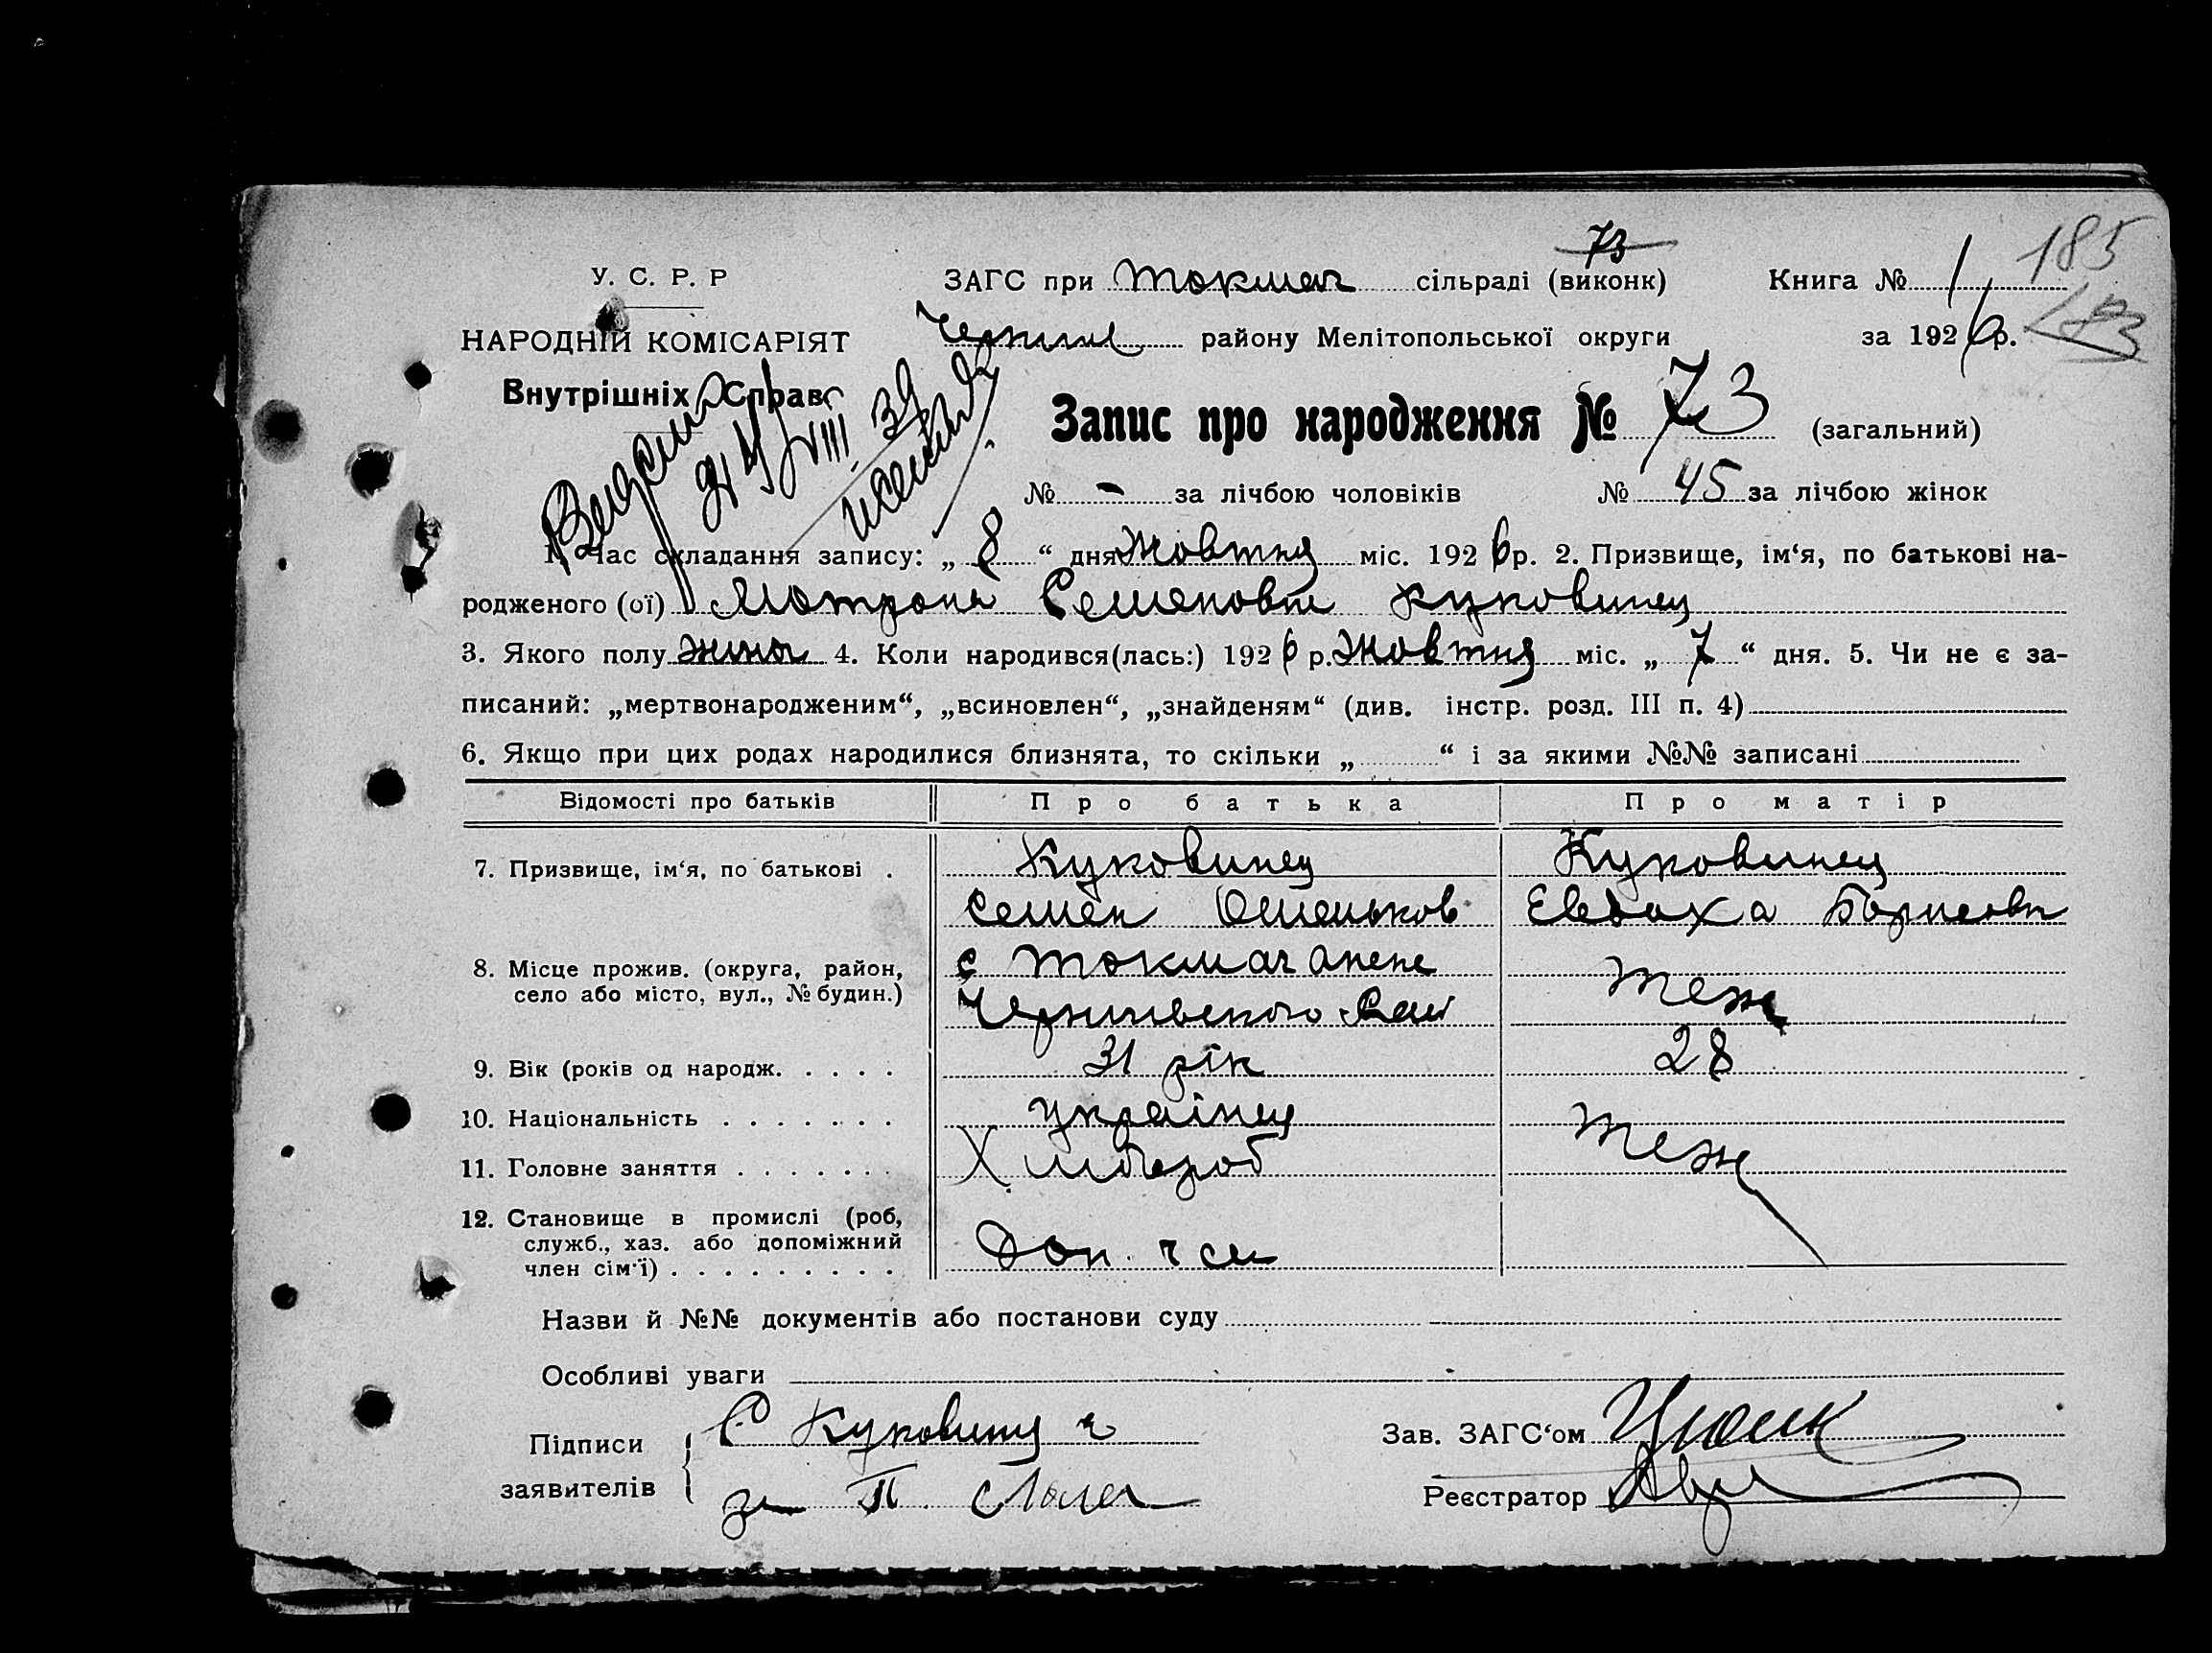 73
У. С. Р. Р ЗАГС при Токмач сільраді (виконк) Книга № 1 185
НАРОДНІЙ КОМІСАРІЯТ Черниг району Мелітопольської округи за 1926 р.
Внутрішніх Справ
VIII 39
Запис про народження № 73 (загальний)
№ - за лічбою чоловіків № 45 за лічбою жінок
1. Час складання запису: „ 8 “ дня Жовтня міс. 1926 р. 2. Призвище, ім‘я, по батькові на-
родженого (ої) Мотрона Семеновна Куковинец
3. Якого полу жіноч 4. Коли народився(лась:) 1926 р. Жовтня міс. „ 7 “ дня. 5. Чи не є за-
писаний: „мертвонародженим“, „всиновлен“, „знайденям“ (див. інстр. розд. III п. 4)
6. Якщо при цих родах народилися близнята, то скільки „ “ і за якими №№ записані
Відомості про батьків Про батька Про матір
7. Призвище, ім‘я, по батькові . Куковинец Куковинец
Семен Евдоха Борисовн
8. Місце прожив. (округа, район, село або місто, вул., № будин.) с Токмач Теж
Чернигвского
9. Вік (років од народж. . . . . 31 рік 28
10. Національність . . . . . . . українец Теж
11. Головне заняття . . . . . . . Хлібороб
12. Становище в промислі (роб, служб., хаз. або допоміжний член сім‘ї) . . . . . . . . . Доп. ч см
Назви й №№ документів або постанови суду
Особливі уваги
Підписи заявителів С Куковинец
Зав. ЗАГС‘ом
Реєстратор